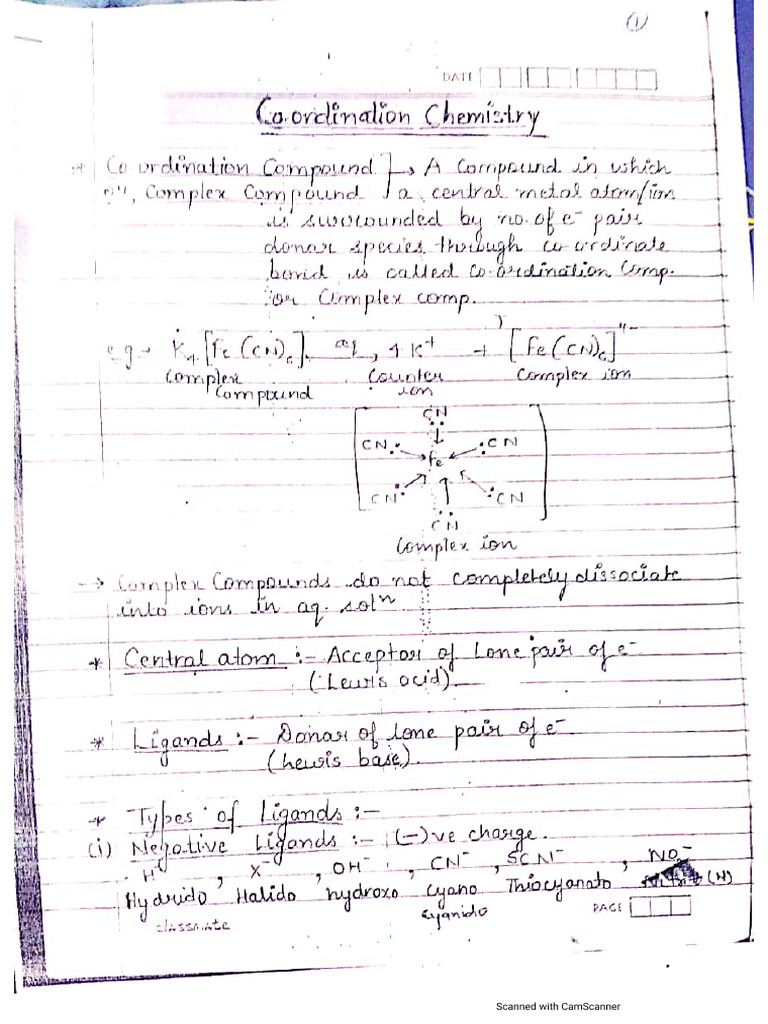 ①
DATE
Co-ordination Chemistry
* Co-ordination Compound → A Compound in which
Complex Compound a central metal atom/ion
is surrounded by no. of e⁻ pair
donar species through co-ordinate
bond is called Co-ordination Comp.
or Complex comp.
eg → K₄[Fe(CN)₆] aq, 4K⁺ → [Fe(CN)₆]⁴⁻
Complex Compound Counter ion Complex ion
CN
CN Fe CN
CN CN
CN
Complex ion
→ Complex Compounds do not completely dissociate
into ions in aq. solⁿ
* Central atom :- Acceptor of Lone pair of e⁻
(Lewis acid)
* Ligands :- Donar of lone pair of e⁻
(Lewis base).
* Types of Ligands :-
(i) Negative Ligands :- (-)ve charge.
H⁻, X⁻, OH⁻, CN⁻, SCN⁻, NO₂⁻
Hydrido Halido hydroxo Cyano Thiocyanato (N)
Cyanido
classmate
PAGE
Scanned with CamScanner